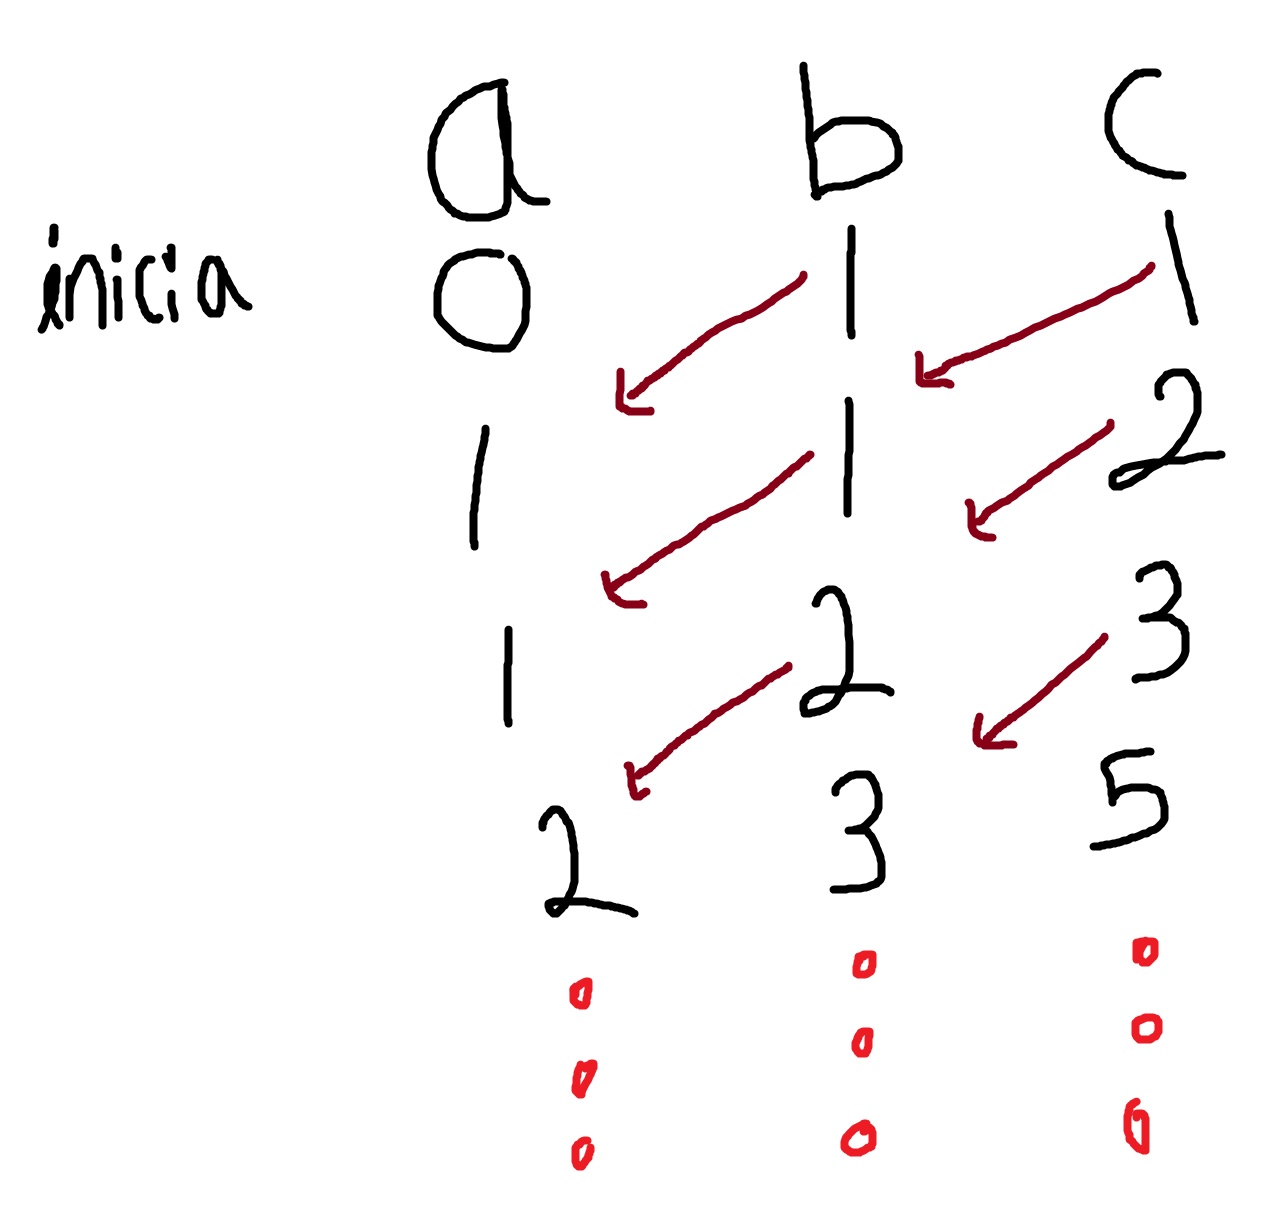 a b c
inicia 0 1 1
1 1 2
1 2 3
2 3 5